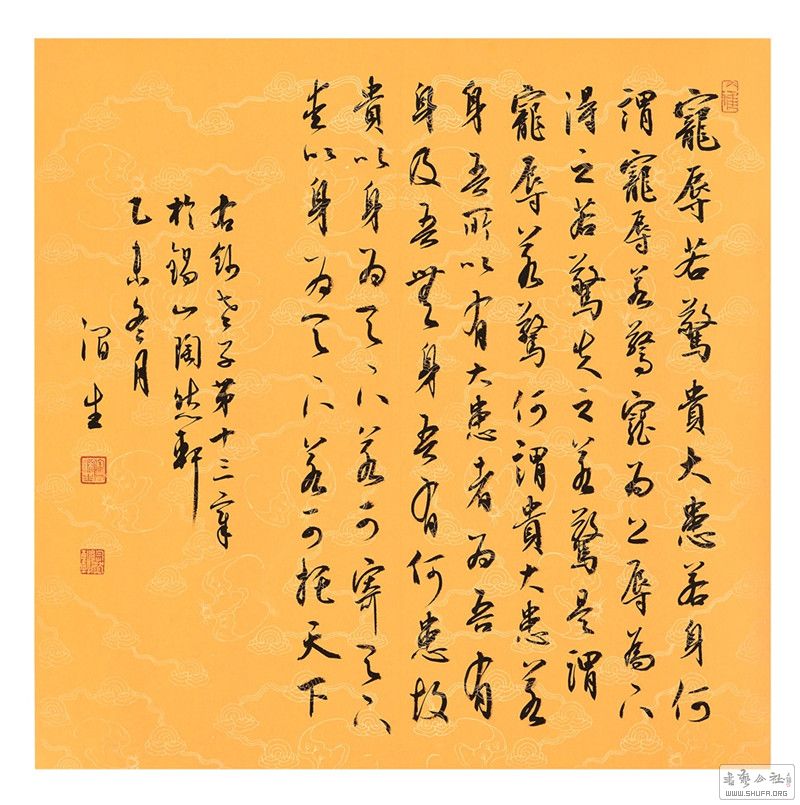 寵辱若驚貴大患若身何
謂寵辱若驚寵為上辱為下
得之若驚失之若驚是謂
寵辱若驚何謂貴大患若
身吾所以有大患者為吾有
身及吾無身吾有何患故
貴以身為天下若可寄天下
愛以身為天下若可托天下
右錄老子第十三章
於錫山陶然軒
乙未冬月
涓生
書藝公社
WWW.SHUFA.ORG